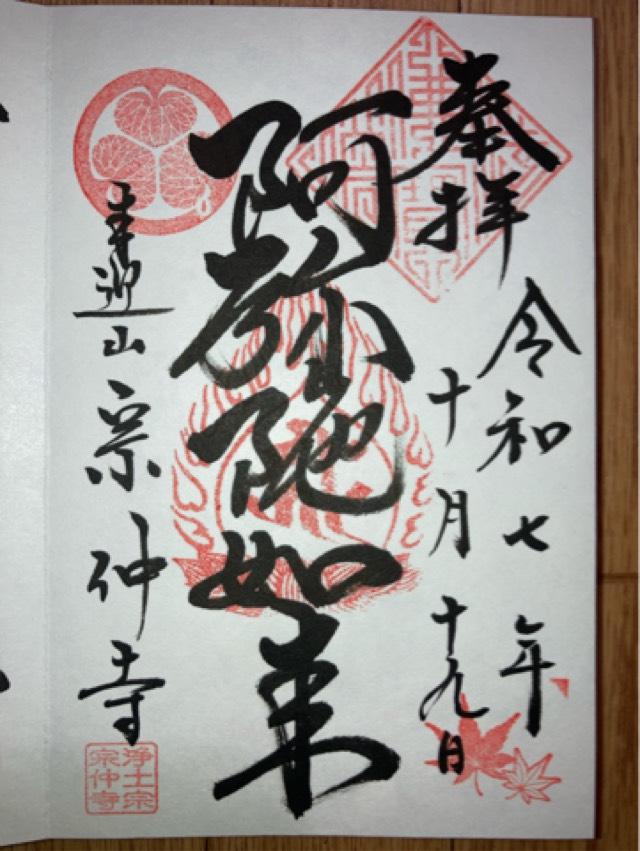 奉拝
令和七年
十月十九日
阿弥陀如来
来迎山宗仲寺
浄土宗
宗仲寺